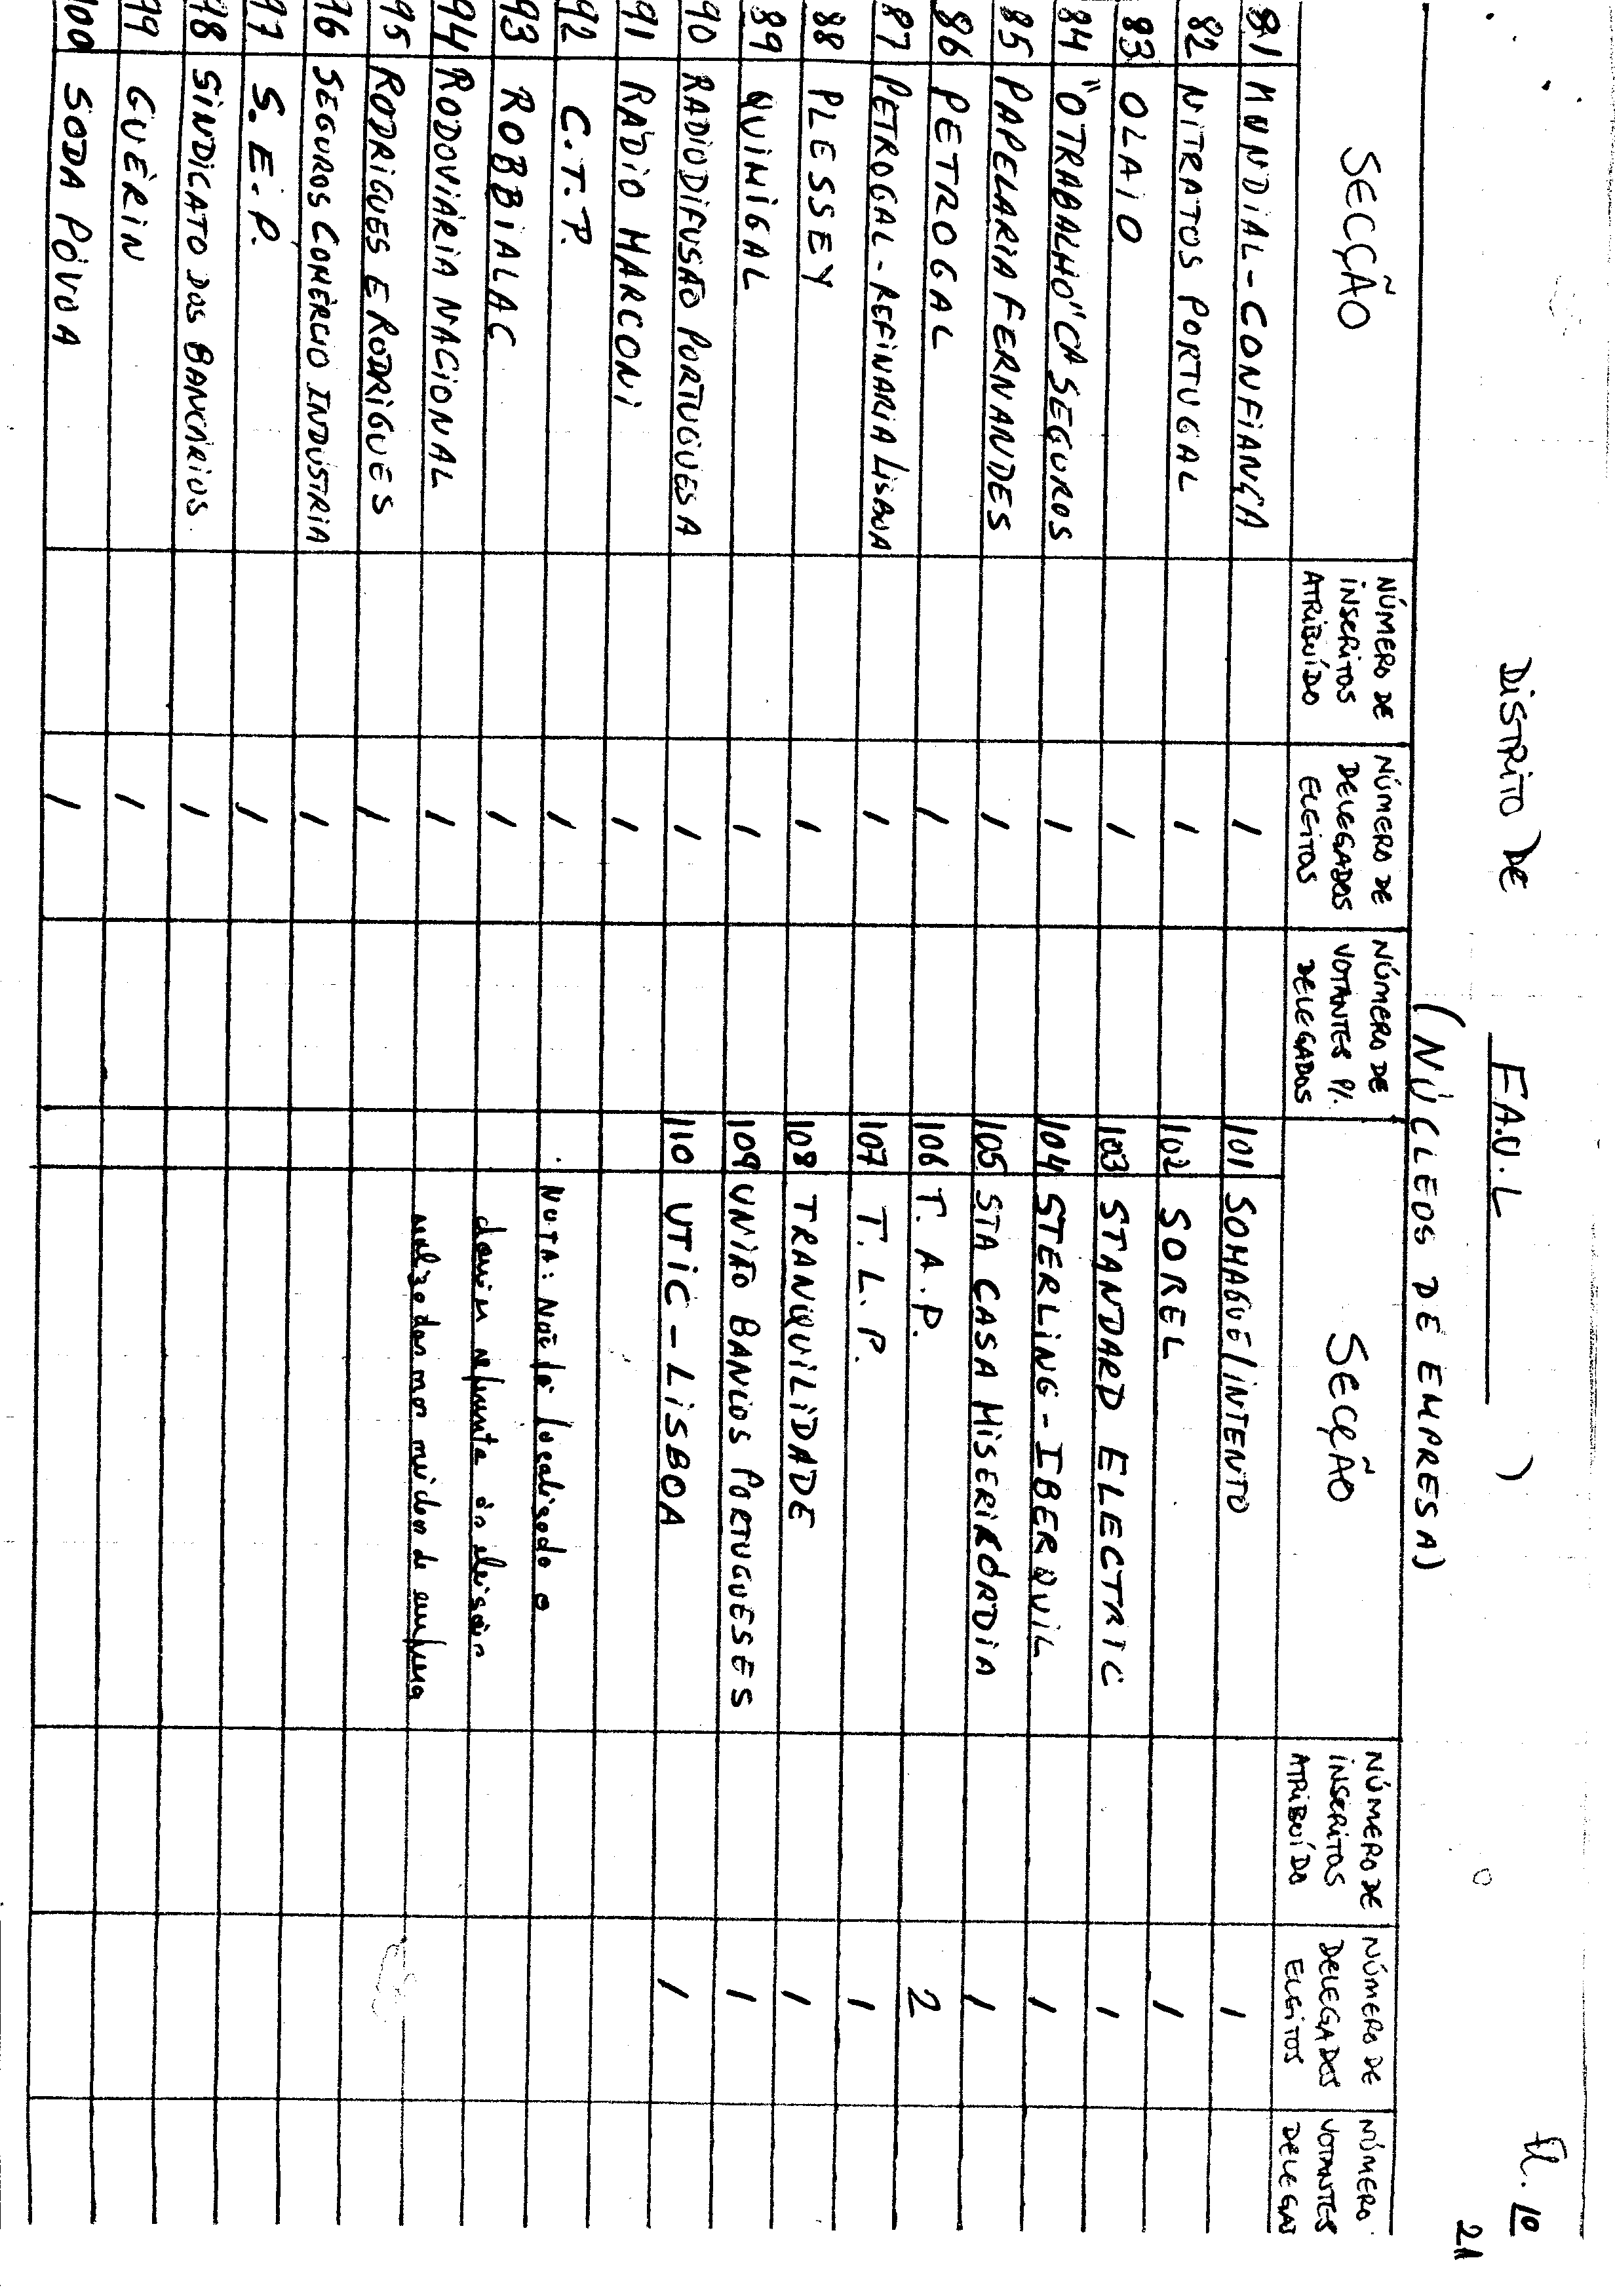 Fl. 10
21
DISTRITO DE F.A.U.L )
(NÚCLEOS DE EMPRESA)
SECÇÃO
NÚMERO DE INSCRITOS ATRIBUÍDO
NÚMERO DE DELEGADOS ELEITOS
NÚMERO DE VOTANTES P/. DELEGADOS
81 MUNDIAL-CONFIANÇA 1
82 NITRATOS PORTUGAL 1
83 OLAIO 1
84 "O TRABALHO" Cª SEGUROS 1
85 PAPELARIA FERNANDES 1
86 PETROGAL 1
87 PETROGAL-REFINARIA LISBOA 1
88 PLESSEY 1
89 QUIMIGAL 1
90 RADIODIFUSÃO PORTUGUESA 1
91 RÁDIO MARCONI 1
92 C.T.P. 1
93 ROBBIALAC 1
94 RODOVIÁRIA NACIONAL 1
95 RODRIGUES E RODRIGUES 1
96 SEGUROS COMÉRCIO INDÚSTRIA 1
97 S.E.P. 1
98 SINDICATO DOS BANCÁRIOS 1
99 GUÉRIN 1
100 SODA PÓVOA 1
SECÇÃO
NÚMERO DE INSCRITOS ATRIBUÍDO
NÚMERO DE DELEGADOS ELEITOS
NÚMERO VOTANTES DELEGA
101 SOMAGUE/INTENTO 1
102 SOREL 1
103 STANDARD ELECTRIC 1
104 STERLING-IBERQUIL 1
105 STA CASA MISERIRÓRDIA 1
106 T.A.P. 2
107 T.L.P. 1
108 TRANQUILIDADE 1
109 UNIÃO BANCOS PORTUGUESES 1
110 UTIC-LISBOA 1
NOTA: Não foi localizado o
dossier referente às eleições
realizadas nos núcleos de empresa